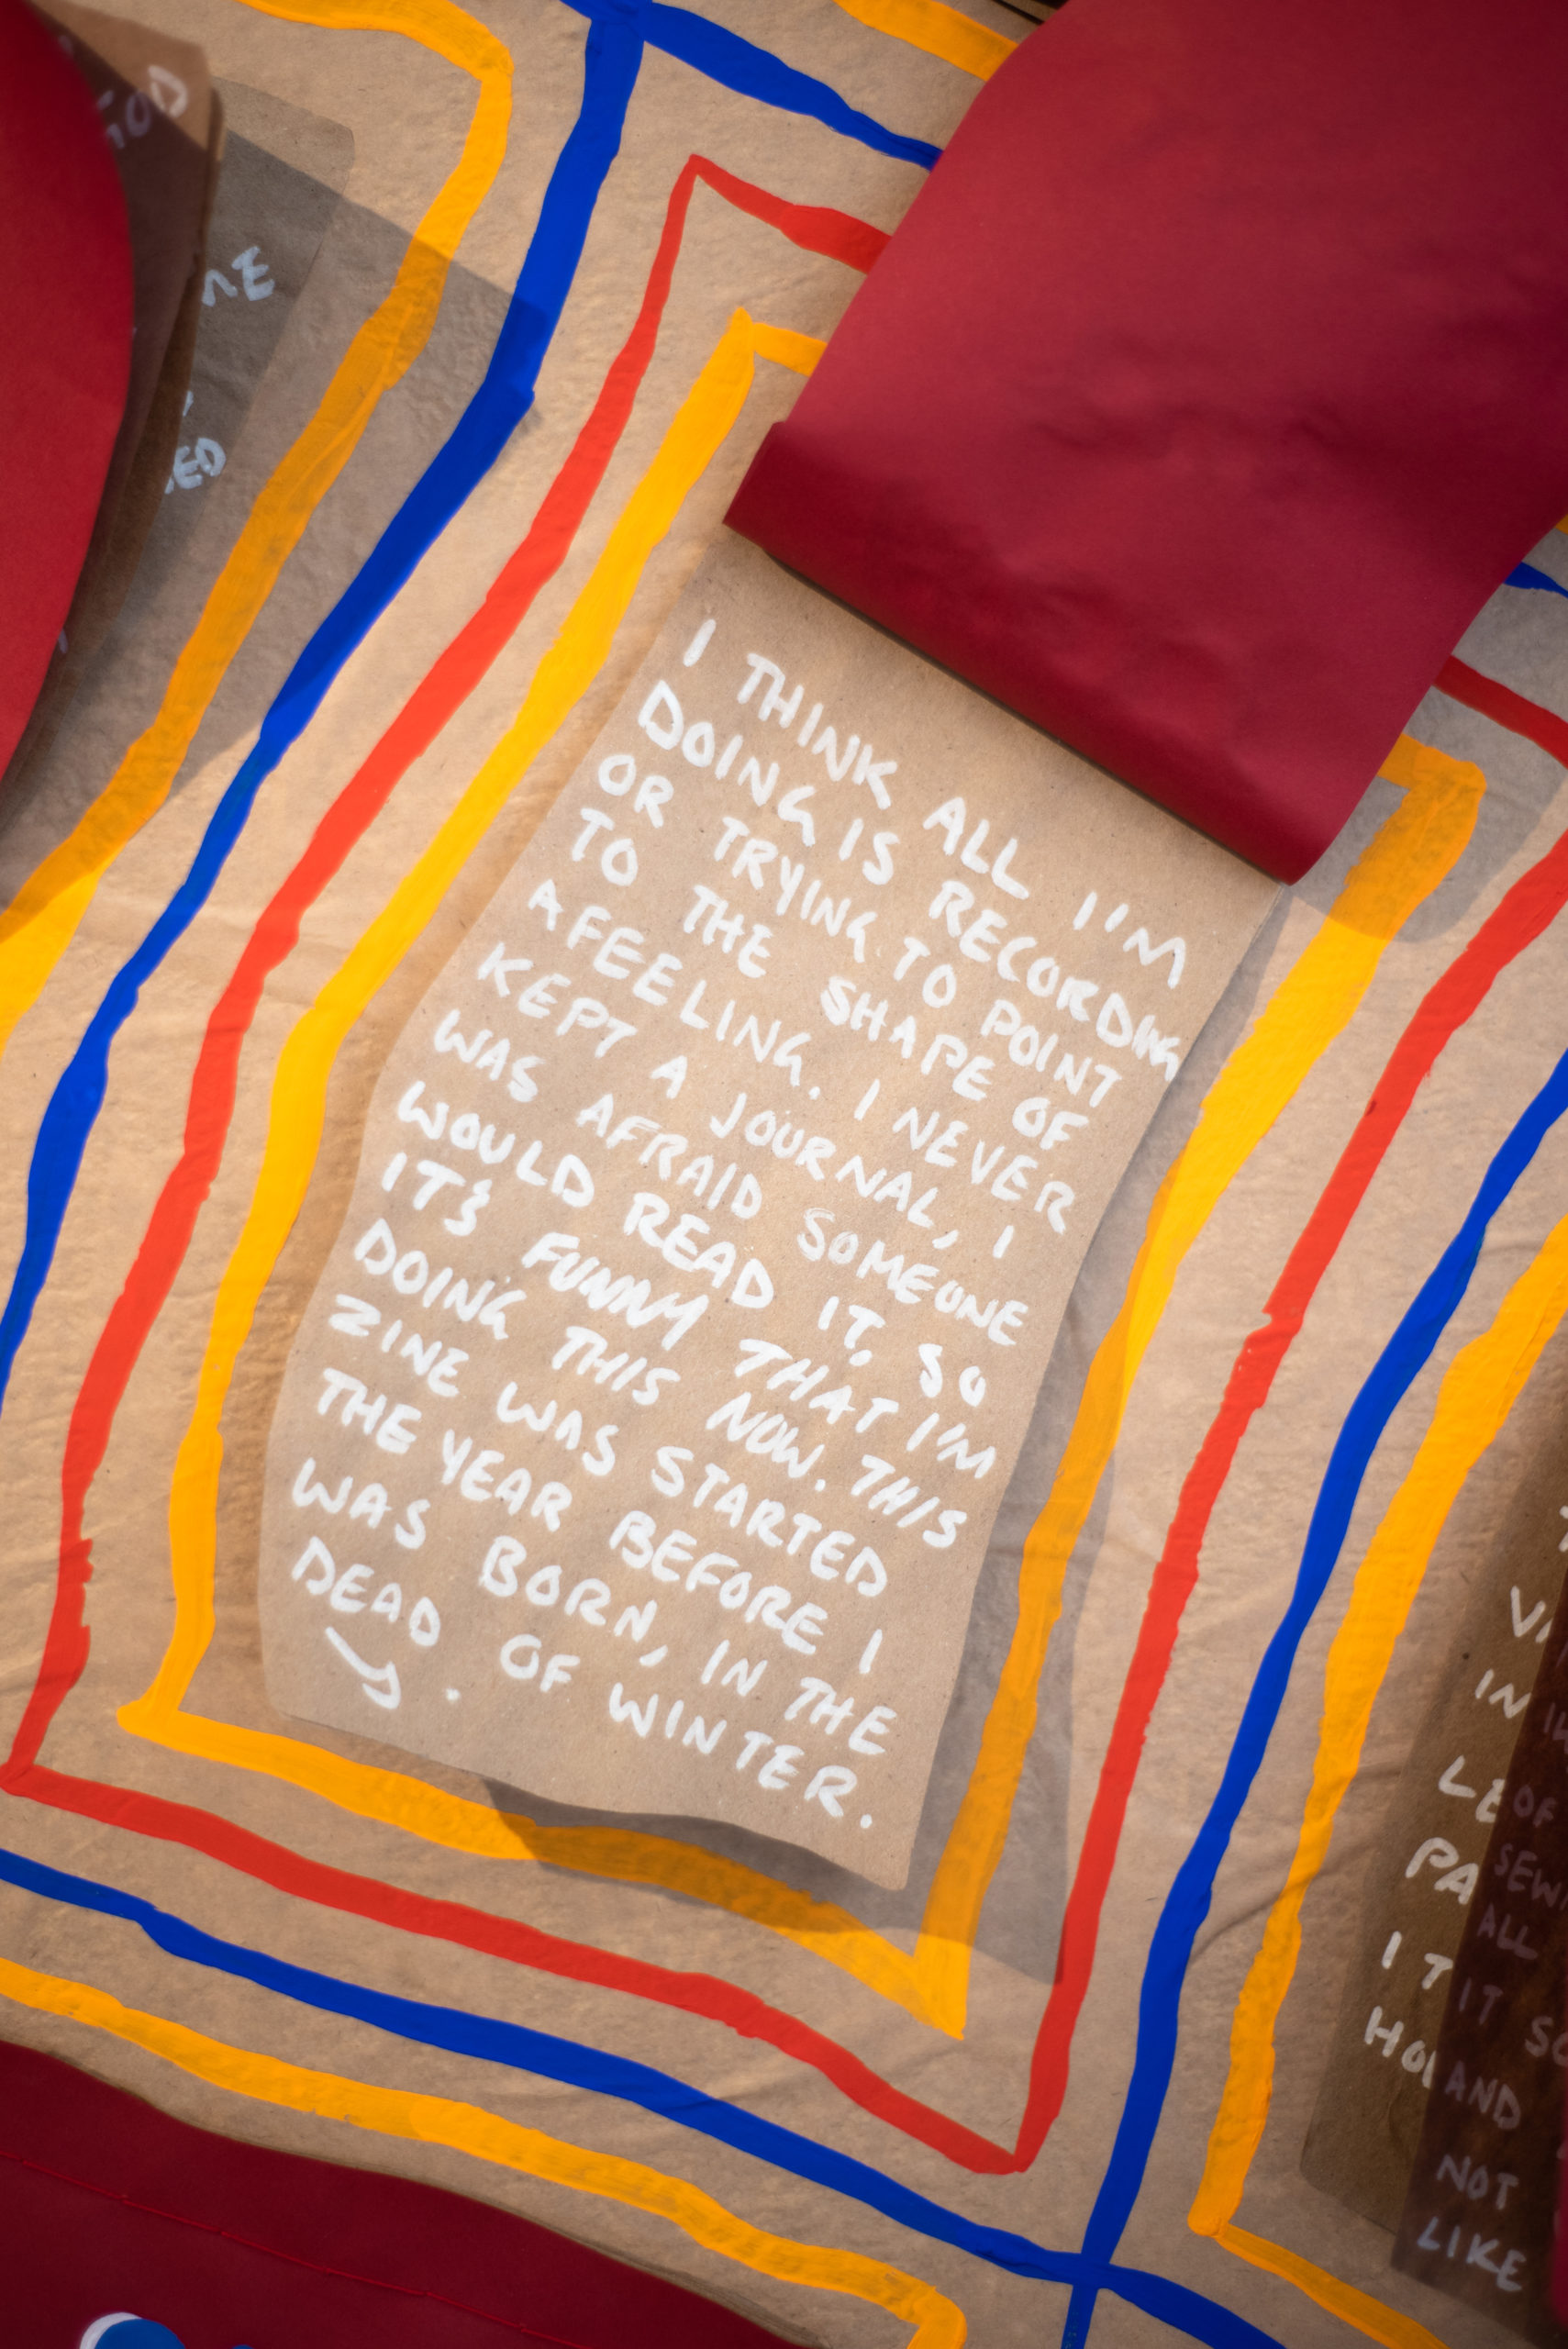 I THINK ALL I'M
DOING IS RECORDING
OR TRYING TO POINT
TO THE SHAPE OF
A FEELING. I NEVER
KEPT A JOURNAL, I
WAS AFRAID SOMEONE
WOULD READ IT, SO
IT'S FUNNY THAT I'M
DOING THIS NOW. THIS
ZINE WAS STARTED
THE YEAR BEFORE I
WAS BORN, IN THE
DEAD OF WINTER.
IN
I
OF
SEW
ALL
IT SO
AND
NOT
LIKE